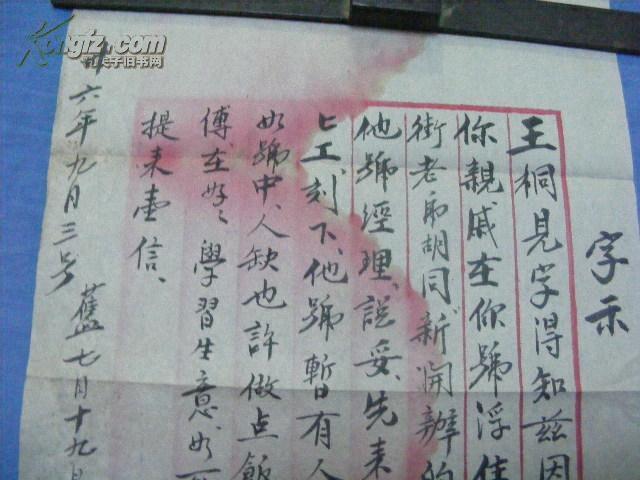 字示
王桐見字得知茲因
你親戚在你號浮住
街老弟胡同新開辦的
他號經理、說妥、先来
上工、刻下、他號暫日有人
如號中、人缺也許做点飯
傅在好〻學習生意、如一
提来壹信、
廿六年九月三号 舊七月十九日
Kongfz.com
孔夫子旧书网